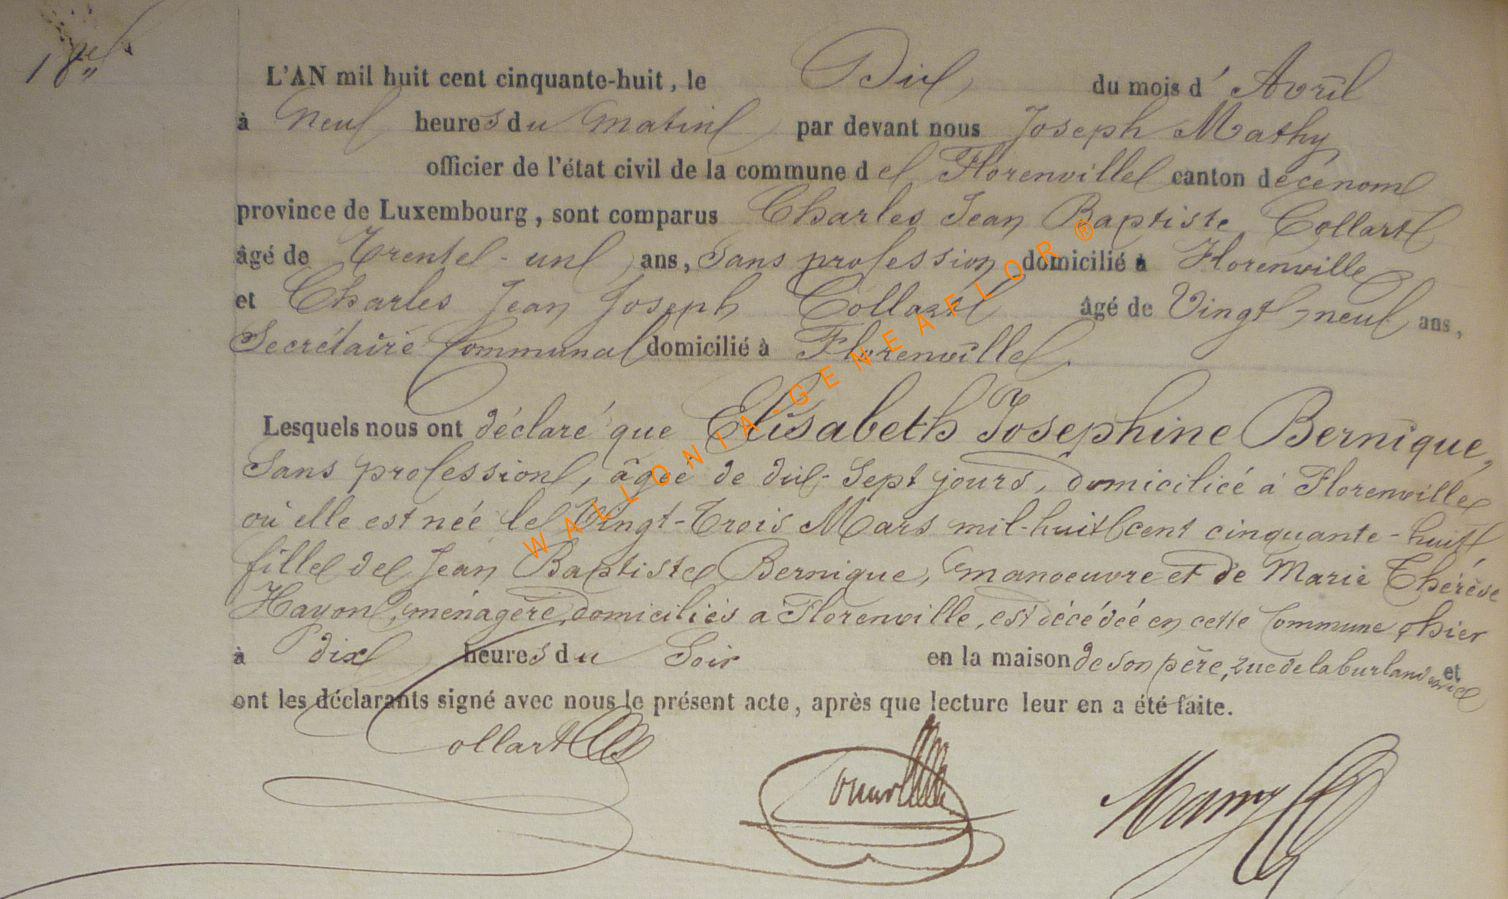 18e
L'AN mil huit cent cinquante-huit, le Dix du mois d' Avril
à Neuf heures du Matin par devant nous Joseph Mathy
officier de l'état civil de la commune de Florenville canton de ce nom
province de Luxembourg, sont comparus Charles Jean Baptiste Collart
âgé de Trente-un ans, Sans profession domicilié à Florenville
et Charles Jean Joseph Collart âgé de Vingt-neuf ans,
Secrétaire Communal domicilié à Florenville.
Lesquels nous ont déclaré que Elisabeth Josephine Bernique,
Sans profession, âgée de dix-Sept jours, domiciliée à Florenville
où elle est née le Vingt-Trois Mars mil-huit cent cinquante-huit
fille de Jean Baptiste Bernique, manoeuvre et de Marie Thérèse
Hayon, ménagère, domiciliés à Florenville, est décédée en cette Commune hier
à dix heures du Soir en la maison de son père, rue de la et
ont les déclarants signé avec nous le présent acte, après que lecture leur en a été faite.
Collart
WALLONIA-GENEAFLOR ®